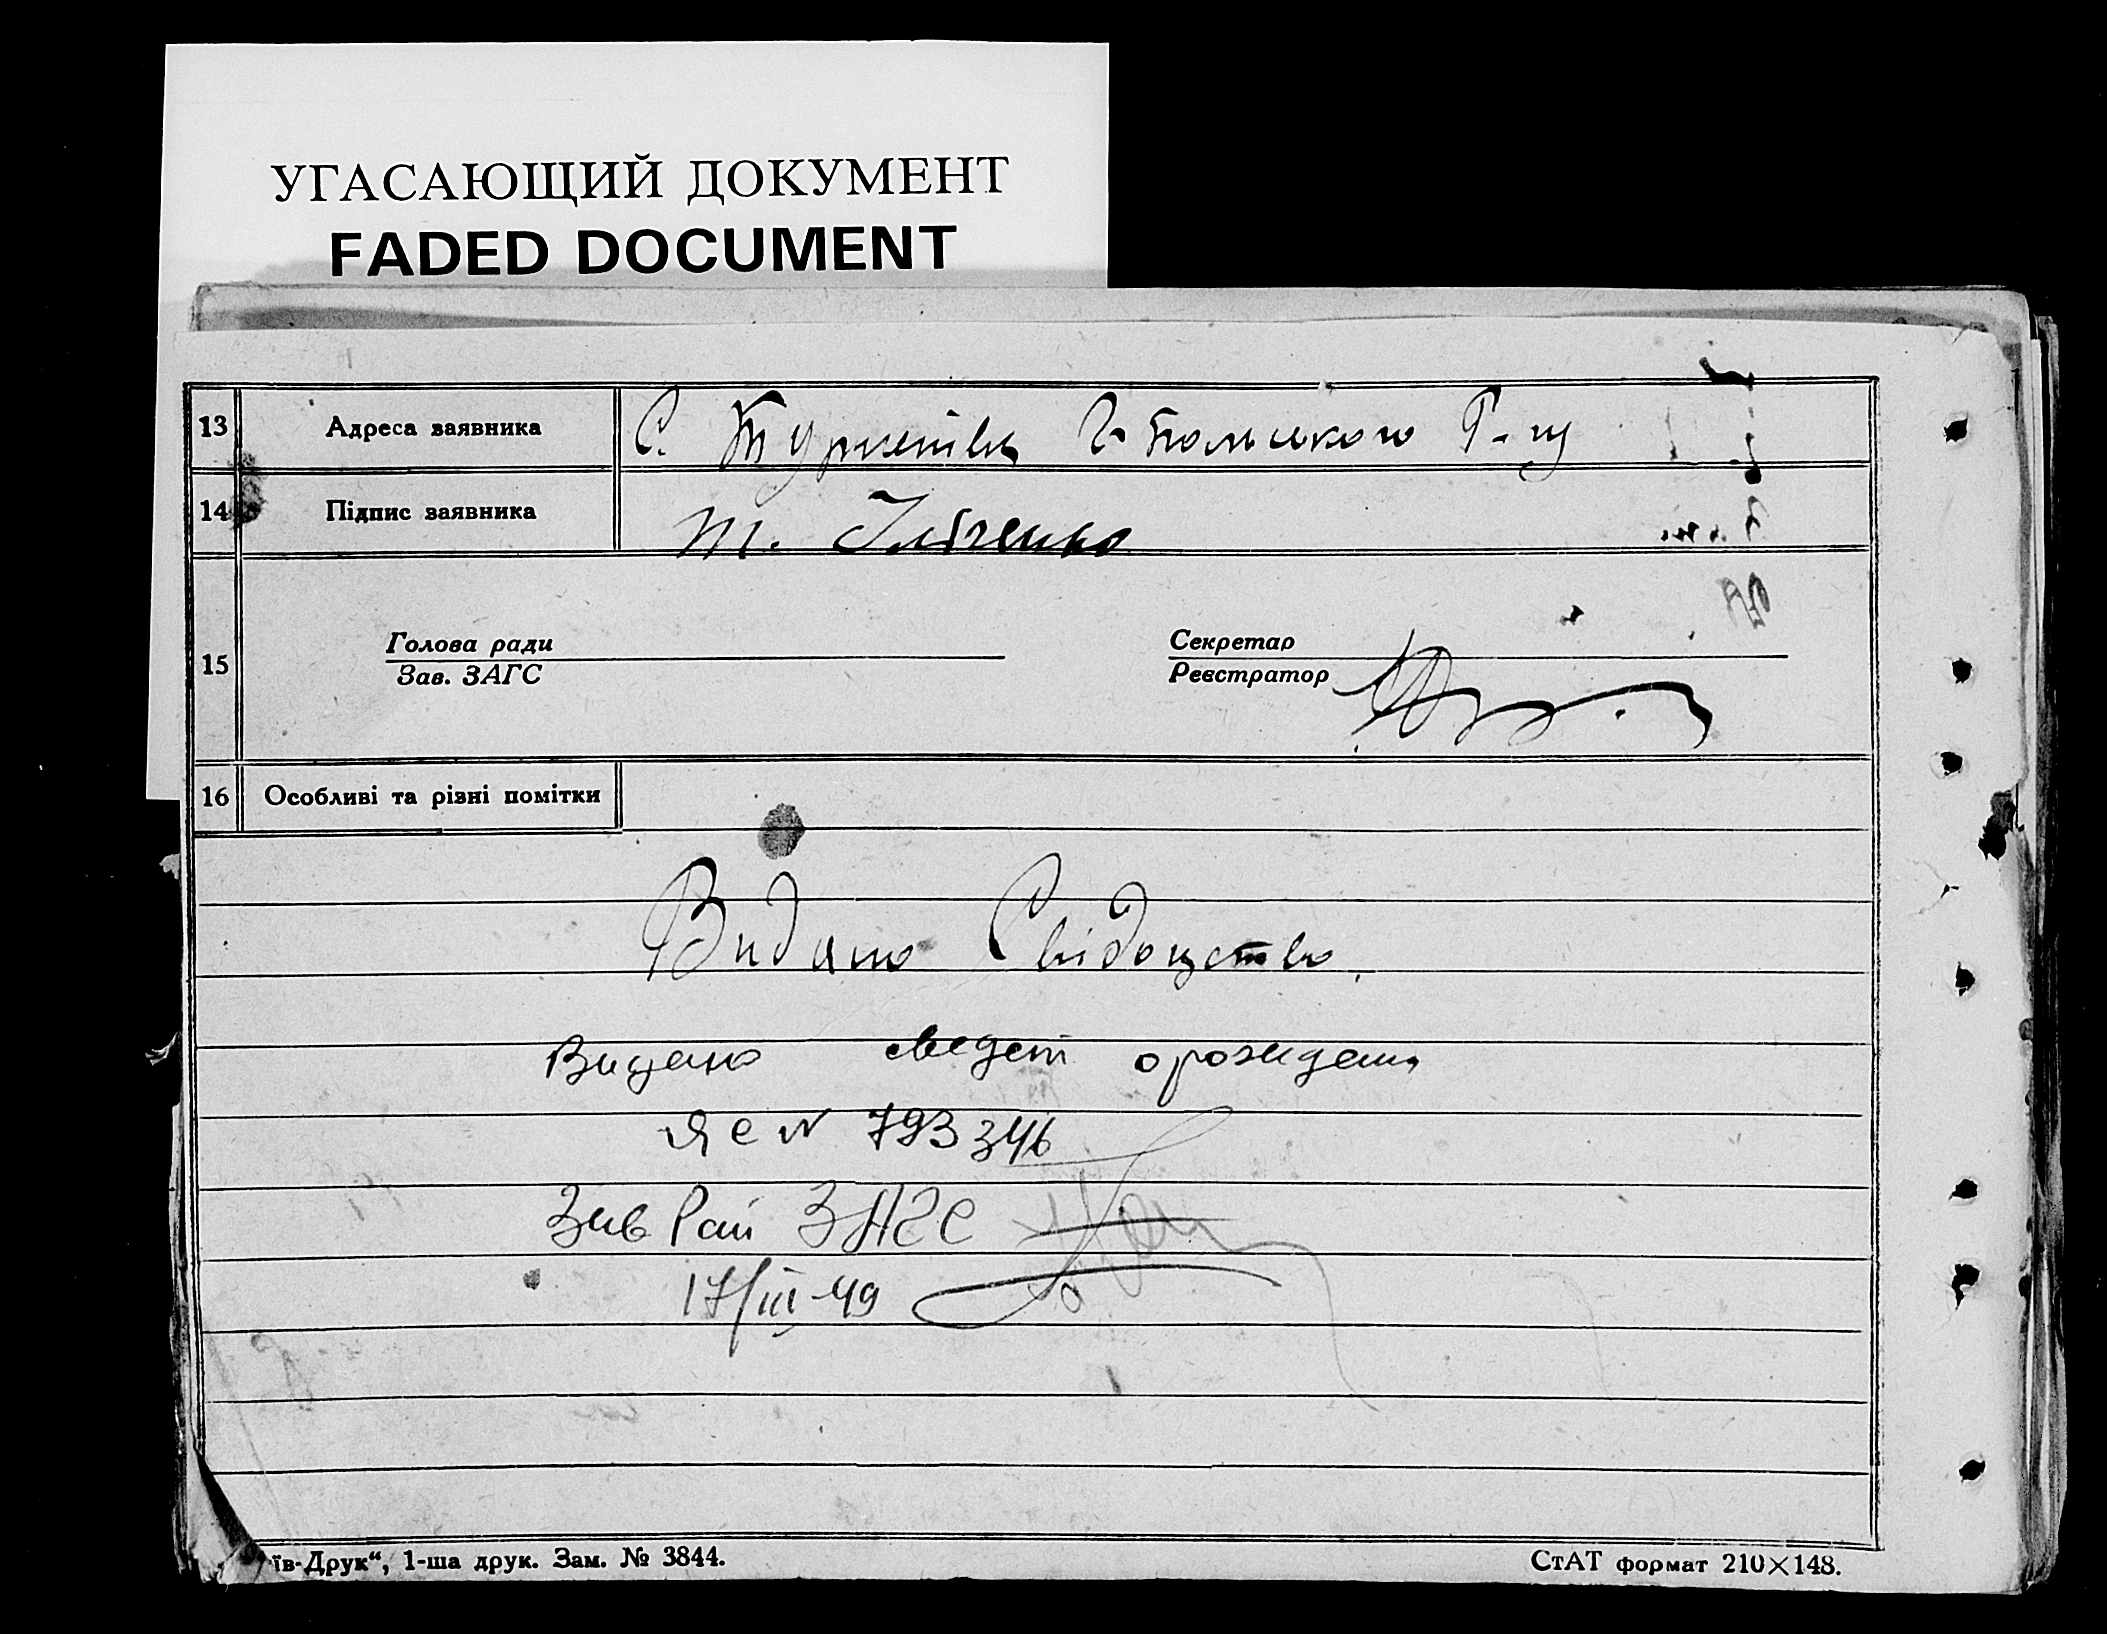 УГАСАЮЩИЙ ДОКУМЕНТ
FADED DOCUMENT
13 Адреса заявника С. Г-Польського Р-ну
14 Підпис заявника Т. Ільченко
15 Голова ради Секретар
Зав. ЗАГС Реєстратор
16 Особливі та різні помітки
Видано Свідоцтво.
Видано свидет о рождении
ЯС N 793346
Зав Рай ЗАГС
17/III-49
їв-Друк“, 1-ша друк. Зам. № 3844. СтАТ формат 210×148.